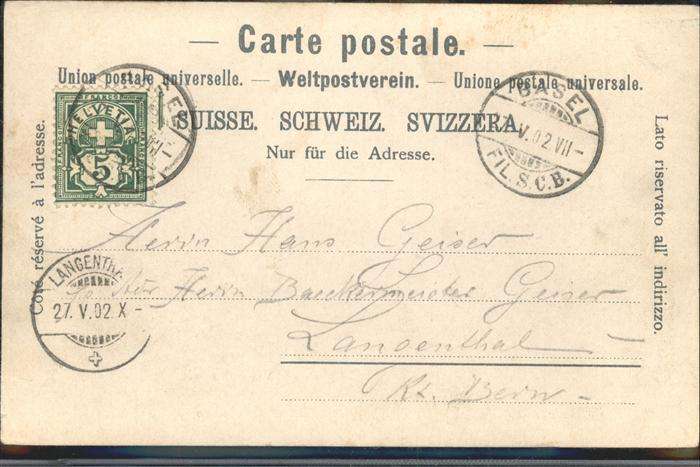 — Carte postale. —
Union postale universelle. — Weltpostverein. — Unione postale universale.
SUISSE. SCHWEIZ. SVIZZERA.
Nur für die Adresse.
Côté réservé à l'adresse.
Lato riservato all' indirizzo.
FRANCO
HELVETIA
5
BASEL
V.02.VII-
FIL. S.C.B.
LANGENTHAL
27.V.02.X-
Herrn Hans Geiser
Herrn Baeckermeister Geiser
Langenthal
Kt. Bern